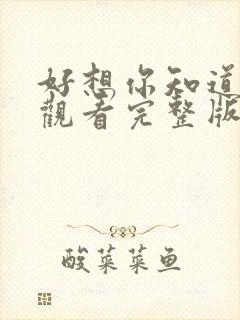 好想你知道
觀看完整版
酸菜菜鱼